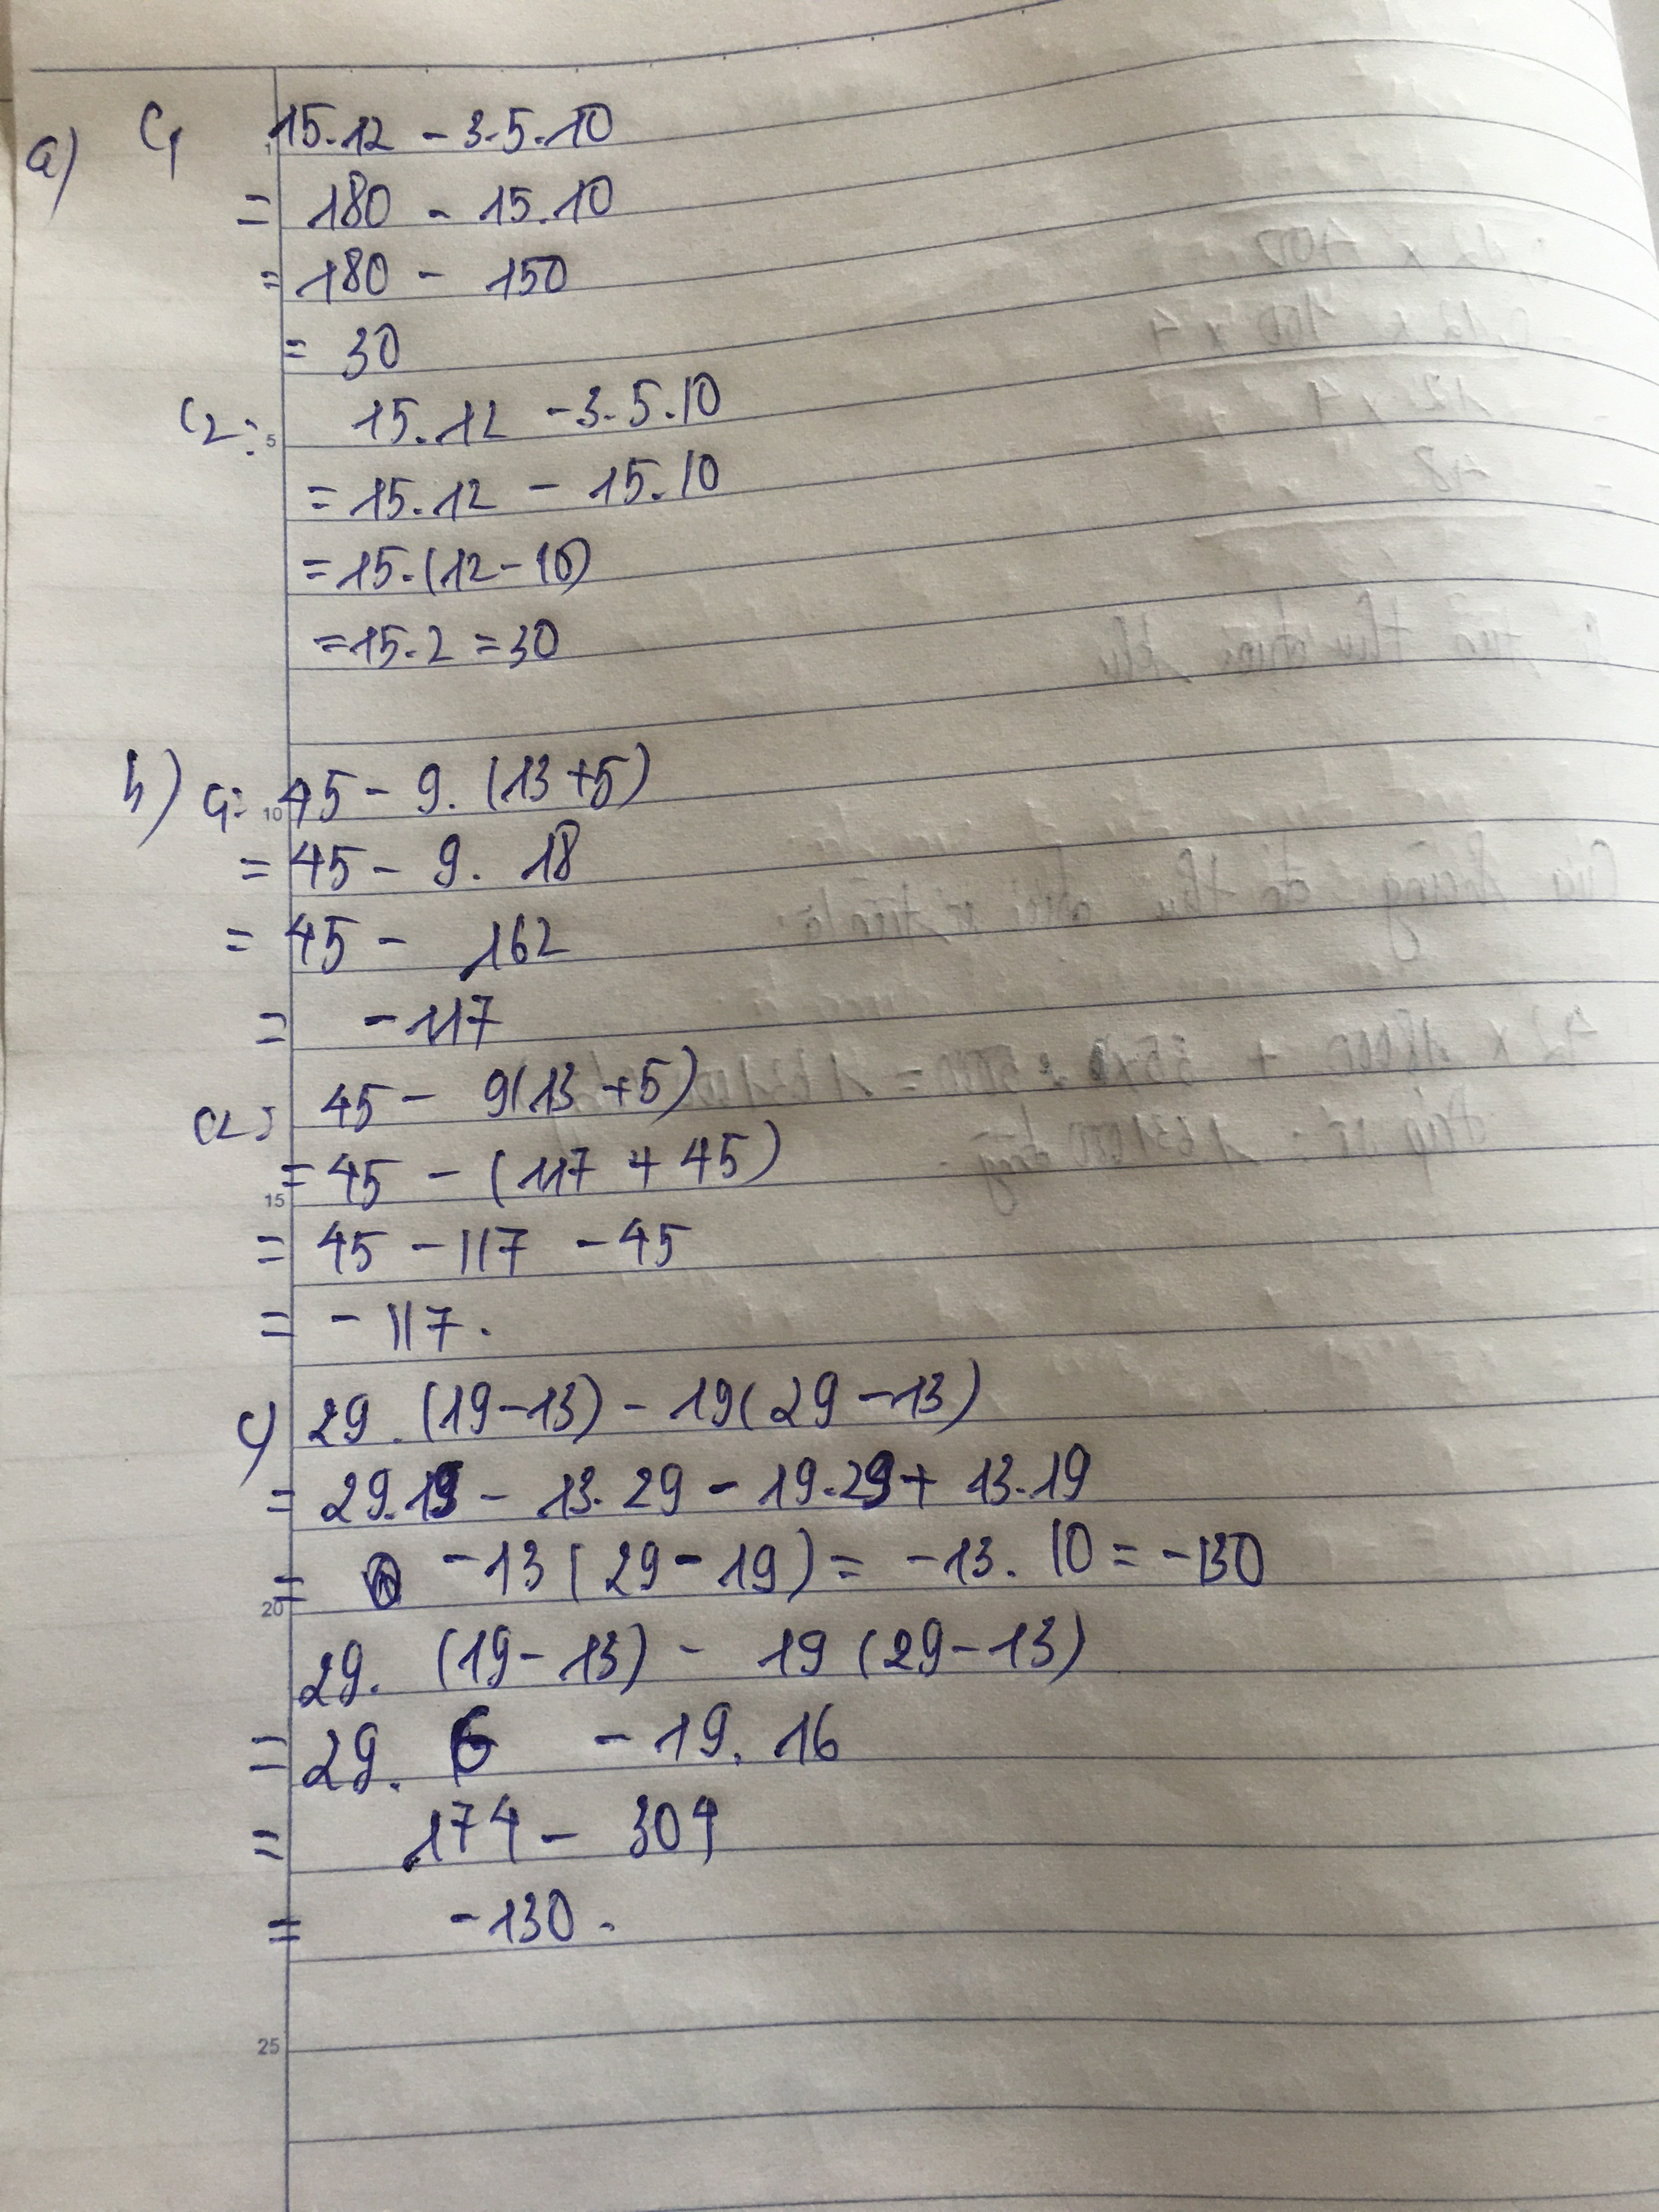 a) C1 15.12 - 3.5.10
= 180 - 15.10
= 180 - 150
= 30
C2: 15.12 - 3.5.10
= 15.12 - 15.10
= 15.(12-10)
= 15.2 = 30
b) C1: 45 - 9. (13+5)
= 45 - 9. 18
= 45 - 162
= - 117
C2: 45 - 9(13+5)
= 45 - (117 + 45)
= 45 - 117 - 45
= - 117.
c) 29. (19-13) - 19(29-13)
= 29.19 - 13.29 - 19.29 + 13.19
= -13(29-19) = -13. 10 = -130
29. (19-13) - 19(29-13)
= 29. 6 - 19. 16
= 174 - 304
= -130.
5
10
15
20
25